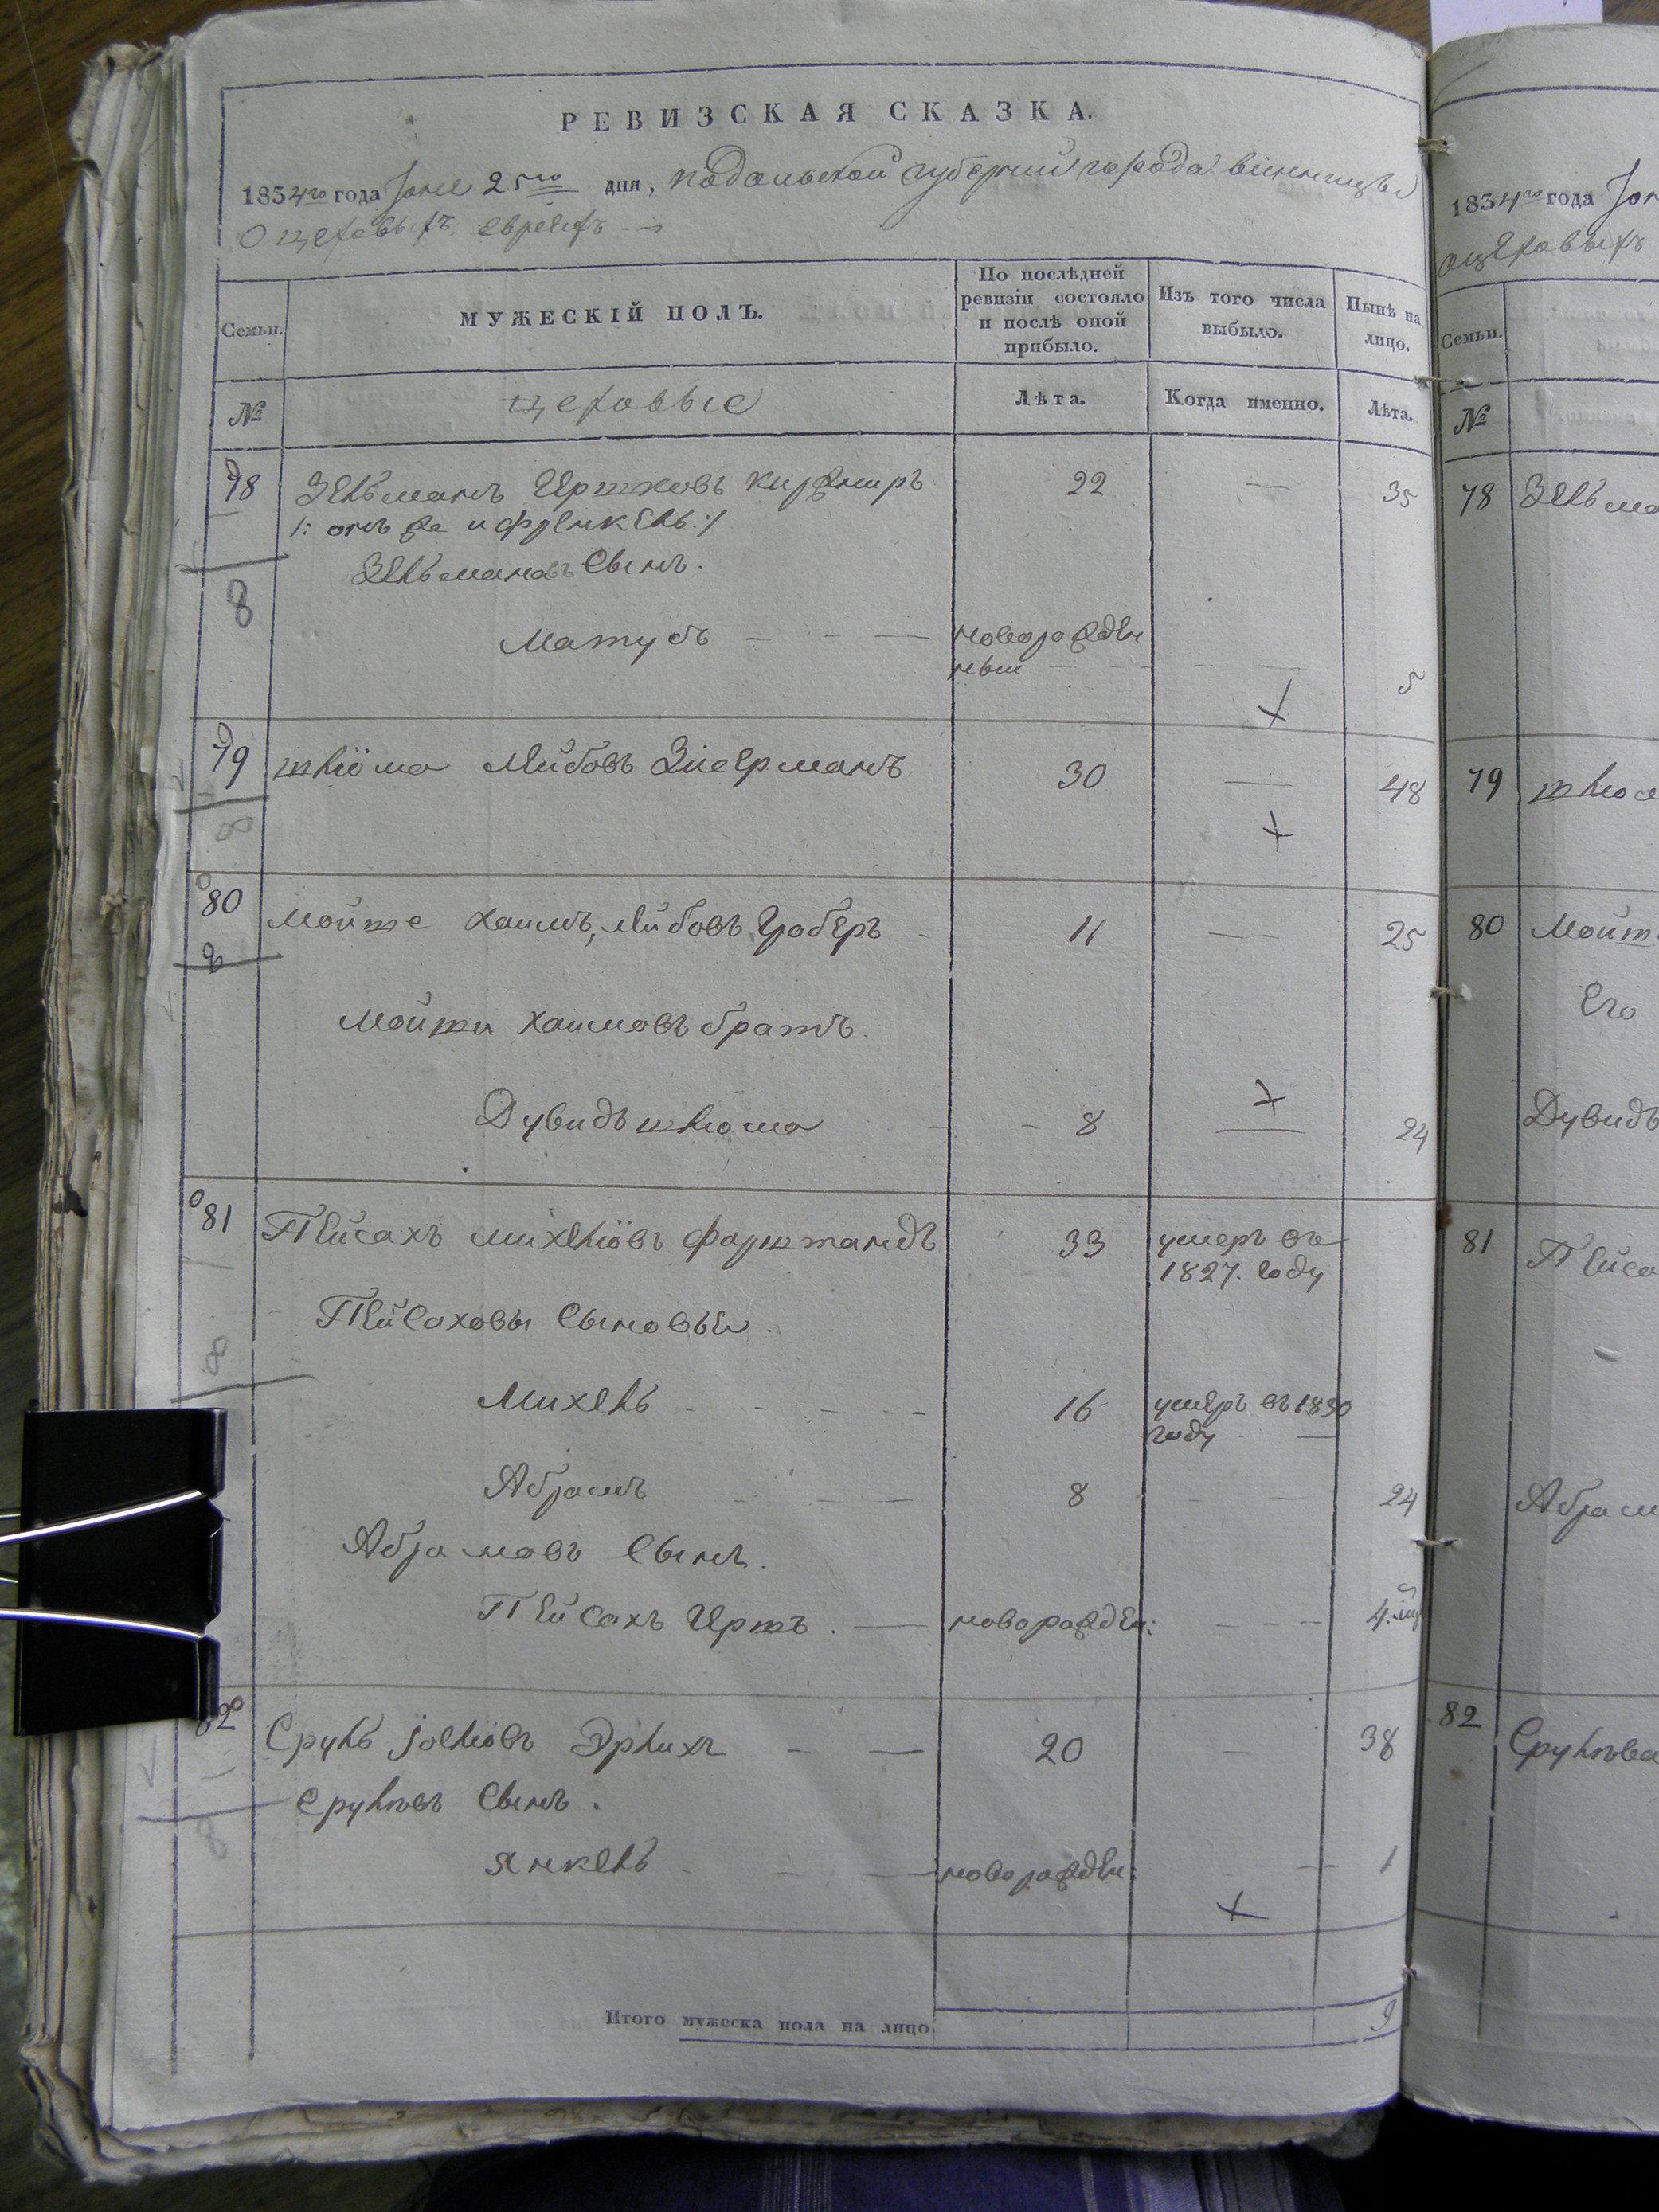 РЕВИЗСКАЯ СКАЗКА.
1834го года Іюня 25го дня, подольской губерніи города винницы
О цеховыхъ евреяхъ
Семьи.
МУЖЕСКІЙ ПОЛЪ.
По послѣдней ревизіи состояло и послѣ оной прибыло.
Изъ того числа выбыло.
Нынѣ на лицо.
№
цеховые
Лѣта.
Когда именно.
Лѣта.
78 Зельманъ Иршковъ Киржниръ 22 — 35
/: онъ же и Френкель :/
Зельмановъ Сынъ.
8
Матусъ — новорожден
ный — 5
79 Шлiома Лейбовъ 30 — 48
8
80 Мойше Хаимъ, Лейбовъ Гроберъ 11 — 25
8
Мойши Хаимовъ братъ.
Дувидъ Шлюма 8 — 24
81 Пейсахъ Михелiовъ Фауштандъ 33 умеръ въ
1827. году
Пейсаховы Сыновья
8
Михель 16 умеръ въ 1830
году
Абрамъ 8 — 24
Абрамовъ Сынъ.
Пейсахъ Иршъ. — новорожден:
82 Сруль Іоелiовъ Эрлихъ — 20 — 38
Срулiовъ Сынъ.
8
Янкель — новорожден: — 1
Итого мужеска пола на лицо 9
1834го года
оцеховыхъ
Семьи.
№
78
79
80
Его
Дувидъ
81
82